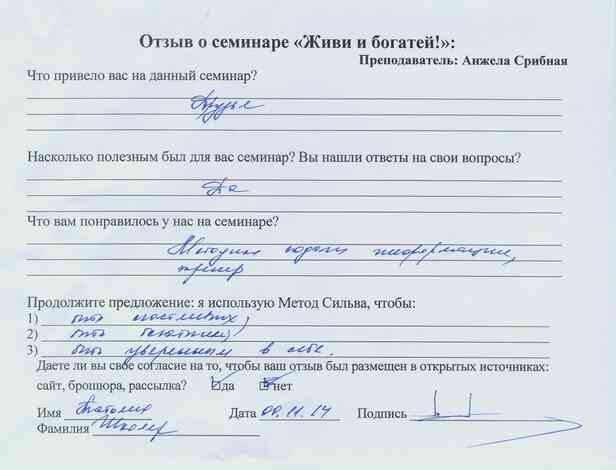 Отзыв о семинаре «Живи и богатей!»:
Преподаватель: Анжела Срибная
Что привело вас на данный семинар?
Друзья
Насколько полезным был для вас семинар? Вы нашли ответы на свои вопросы?
Да
Что вам понравилось у нас на семинаре?
Методика подачи информации,
тренер
Продолжите предложение: я использую Метод Сильва, чтобы:
1) быть счастливых;
2) быть богатых;
3) быть уверенным в себе.
Даете ли вы свое согласие на то, чтобы ваш отзыв был размещен в открытых источниках:
сайт, брошюра, рассылка? да нет
Имя Анатолий Дата 09.11.14 Подпись
Фамилия